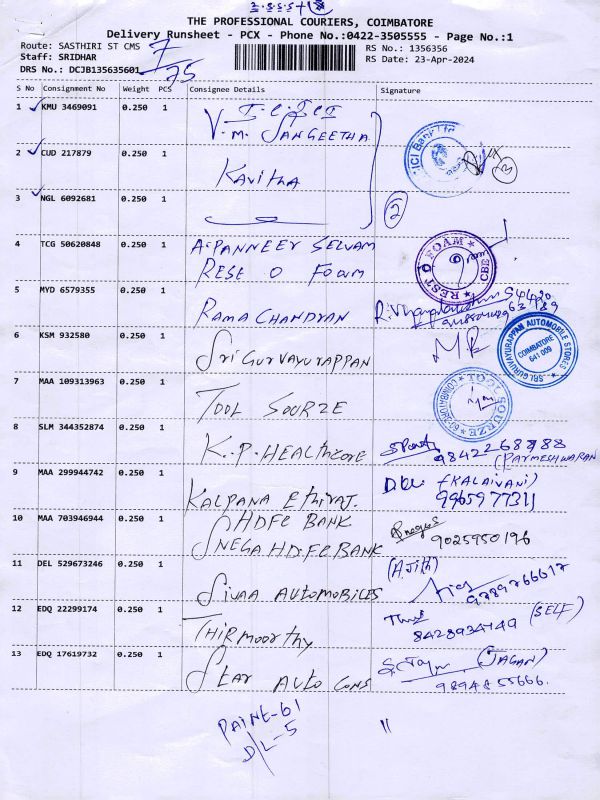 THE PROFESSIONAL COURIERS, COIMBATORE
Delivery Runsheet - PCX - Phone No.:0422-3505555 - Page No.:1
Route: SASTHIRI ST CMS
Staff: SRIDHAR
DRS No.: DCJB135635601
RS No.: 1356356
RS Date: 23-Apr-2024
7/75
S No Consignment No Weight PCS Consignee Details Signature
1 KMU 3469091 0.250 1 V.M. SANGEETHA
2 CUD 217879 0.250 1 KAVITHA
3 NGL 6092681 0.250 1
2
4 TCG 50620848 0.250 1 A.PANNEER SELVAM
RESE O FOAM
REST O FOAM CBE
5 MYD 6579355 0.250 1 RAMA CHANDRAN
6 KSM 932580 0.250 1 SRI GURVAYURAPPAN
SRI GURUVAYURAPPAM AUTOMOBILE STORES
COIMBATORE
641 009
7 MAA 109313963 0.250 1 TOOL SOURZE
TOOL SOURZE
8 SLM 344352874 0.250 1 K.P. HEALTHCARE
9842268788
(PARMESHWARAN
9 MAA 299944742 0.250 1 KALPANA Ethiraj.
(KALAIVANI)
9965977311
10 MAA 703946944 0.250 1 HDFC BANK
SNEGA HDFC BANK
9025950196
11 DEL 529673246 0.250 1 SIVAA AUTOMOBILES
(AJith)
9789766617
12 EDQ 22299174 0.250 1 THIRMOORTHY
(SELF)
8428934749
13 EDQ 17619732 0.250 1 STAR AUTO CONS
(JAGAN)
9894855666.
PAINE-61
D/L-5
"